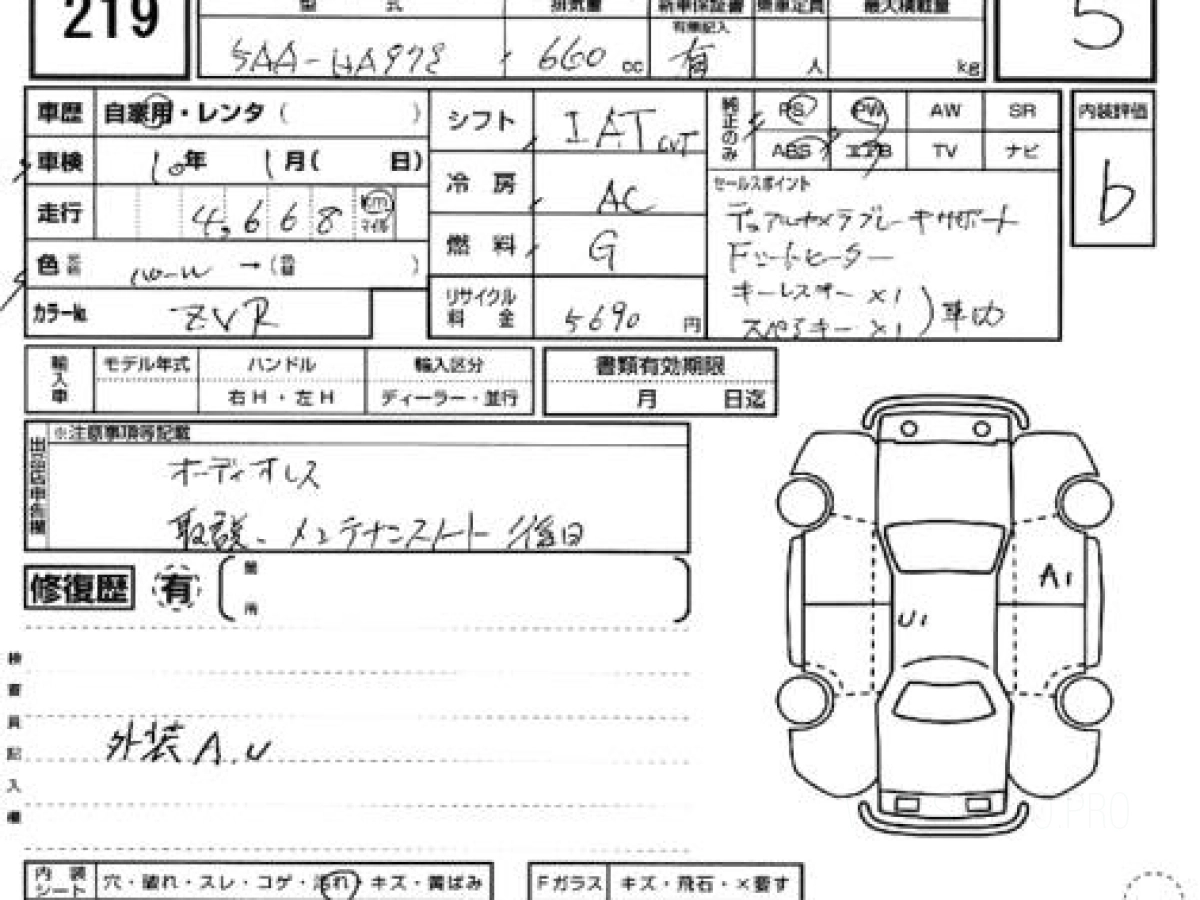 219
型 式 排気量 新車保証書 乗車定員 最大積載量
有無記入
5AA-HA97S 660 cc 有 人 kg
5
車歴 自家用・レンタ ( )
シフト IAT CVT
純正のみ PS PW AW SR
ABS エアB TV ナビ
内装評価
b
車検 10年 1月( 日)
冷房 AC
走行 4,668 Km マイル
燃料 G
色
カラー№ ZVR
リサイクル料金 5690 円
セールスポイント
デュアルカメラブレーキサポート
Fシートヒーター
キーレス
スペアキー ×1
輸入車 モデル年式 ハンドル 輸入区分
右H・左H ディーラー・並行
書類有効期限
月 日迄
出品店申告欄
※注意事項等記載
オーディオレス
取説、メンテナンスノート 後日
修復歴 有
箇所
A1
U1
検査員記入欄
外装A.U
内装シート 穴・破れ・スレ・コゲ・汚れ・キズ・黄ばみ
Fガラス キズ・飛石・×要す